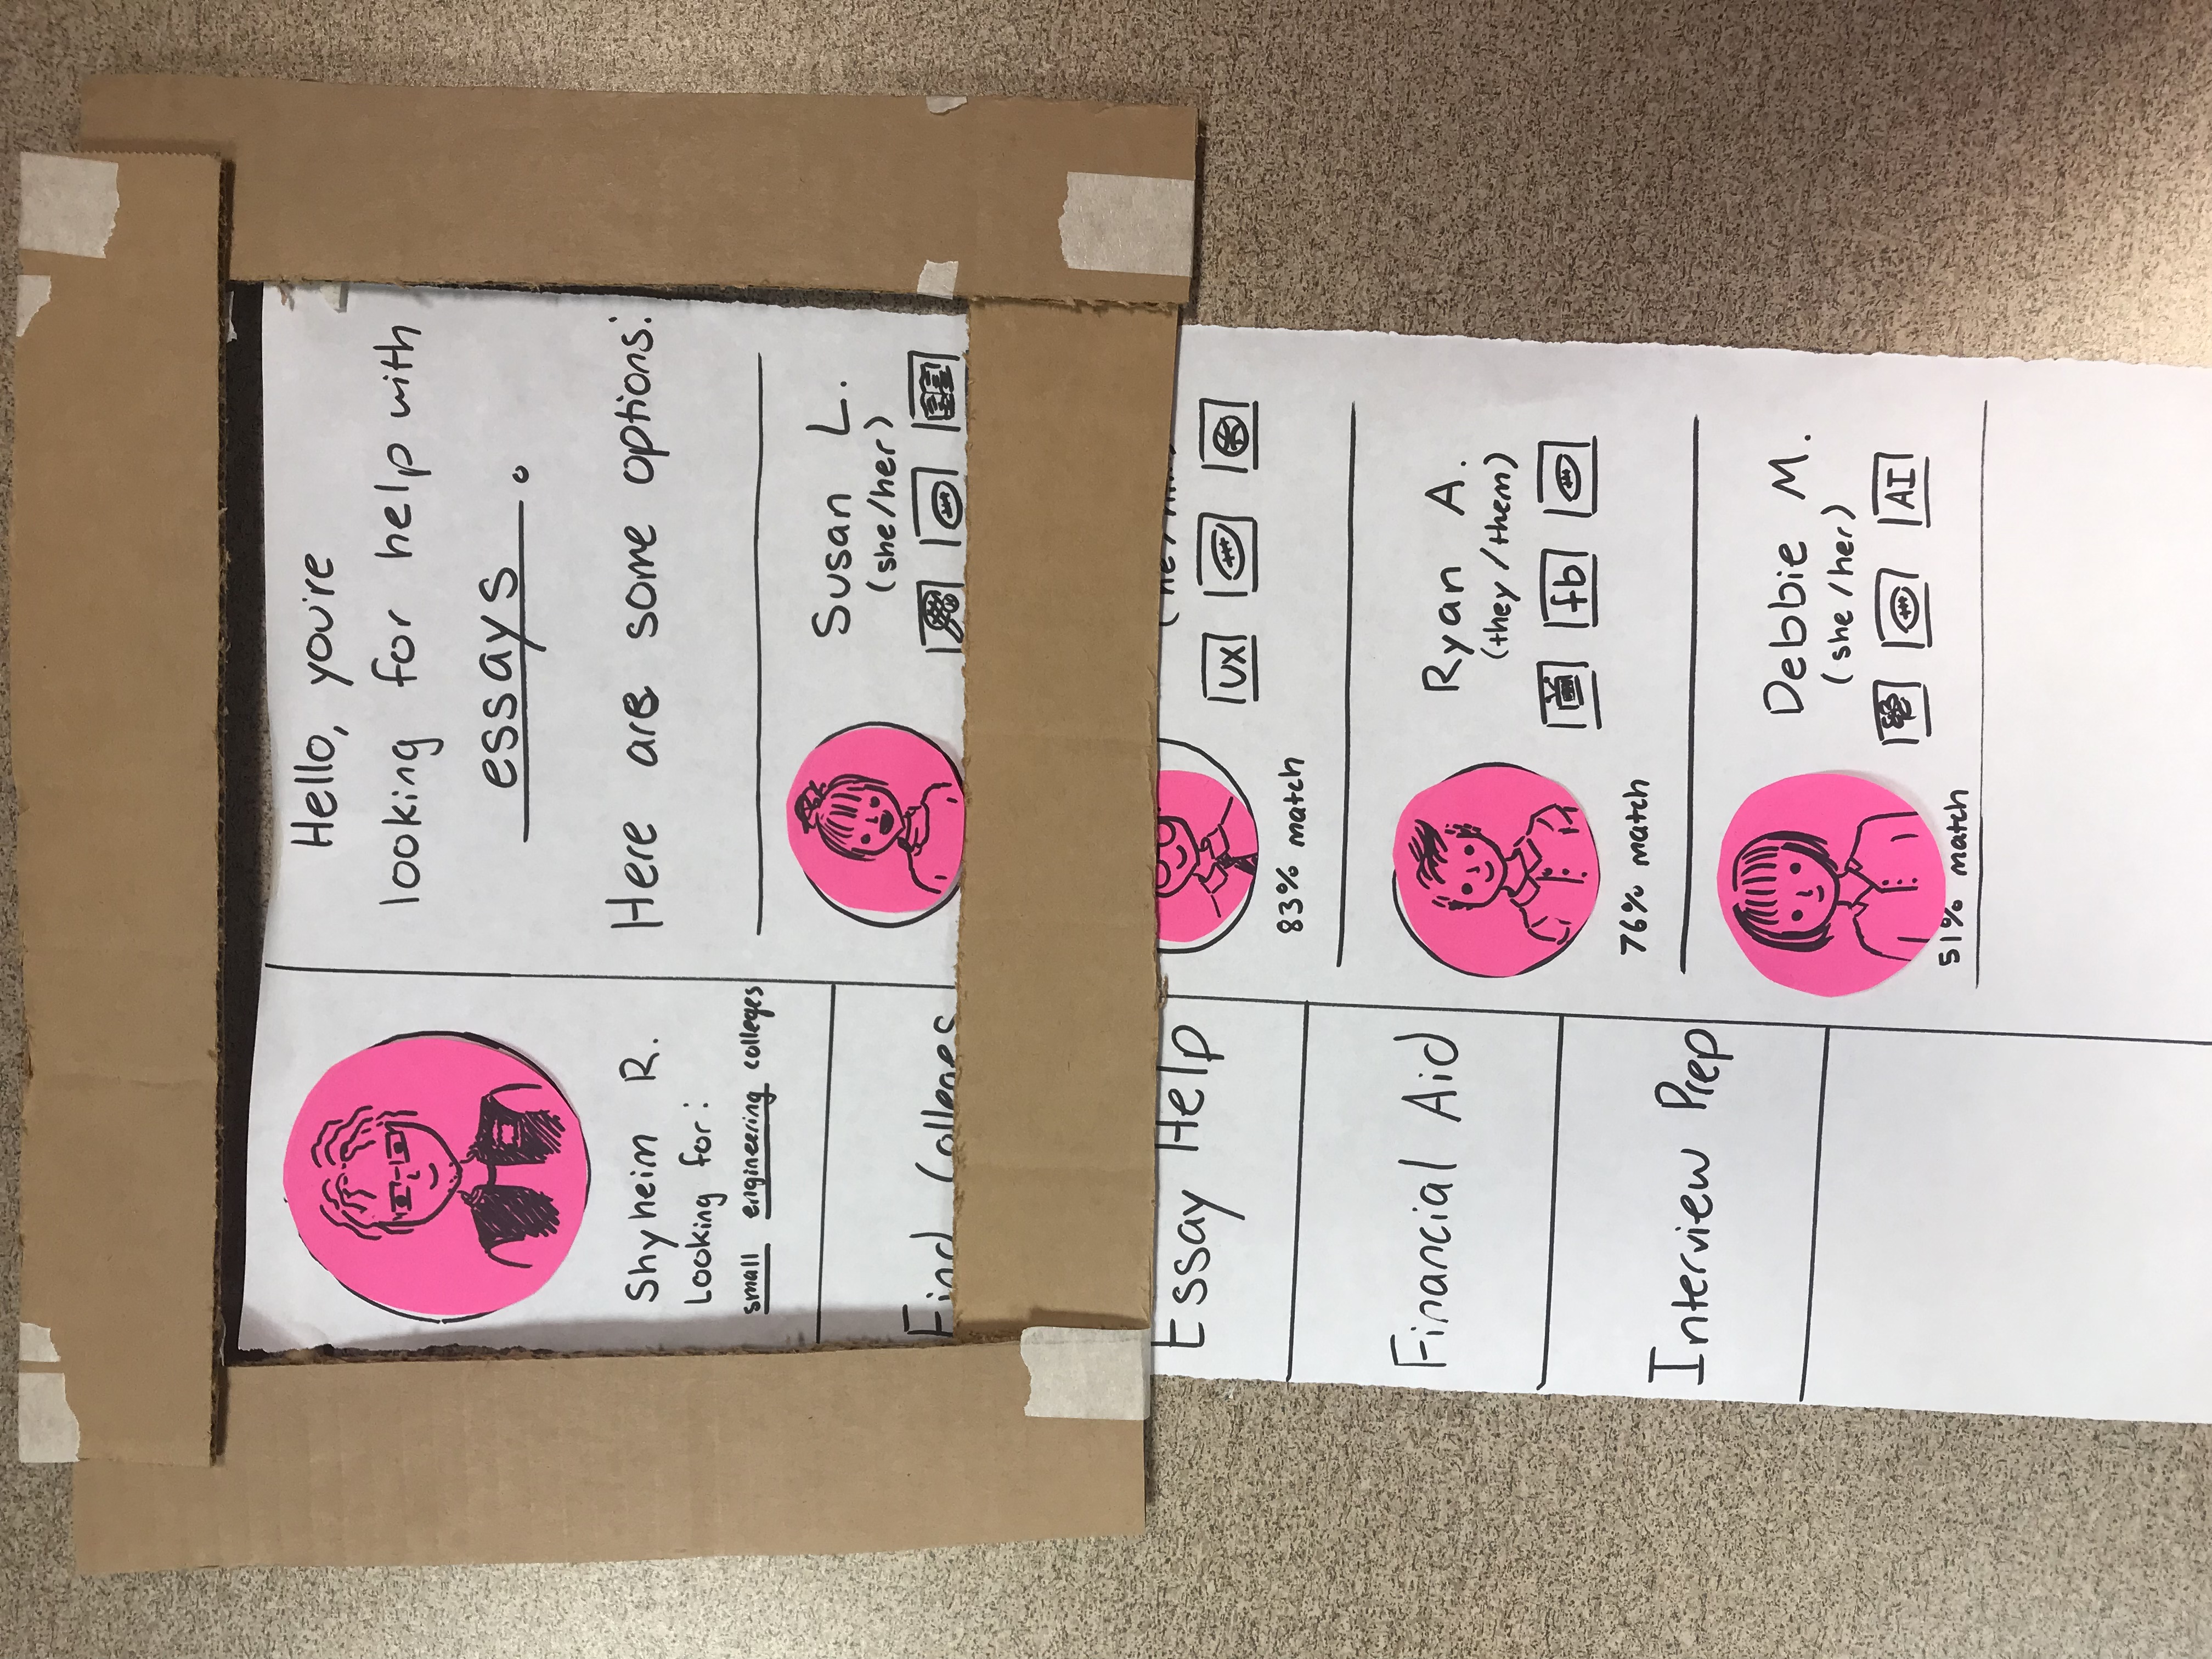 Shyheim R.
Looking for:
small engineering colleges
Find Colleges
Essay Help
Financial Aid
Interview Prep
Hello, you're
looking for help with
essays.
Here are some options:
Susan L.
(she/her)
UX
83% match
Ryan A.
(they/them)
fb
76% match
Debbie M.
(she/her)
AI
51% match